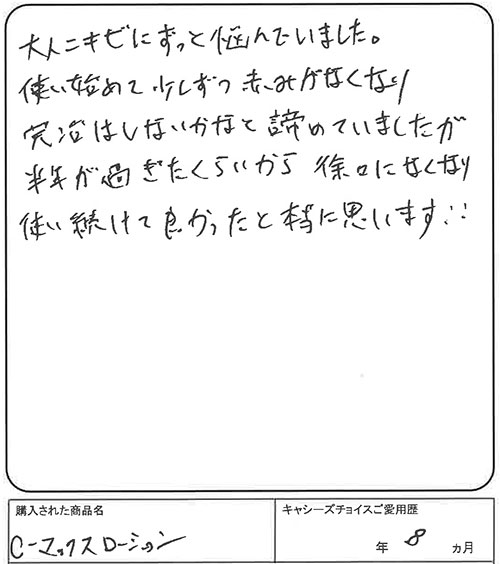 大人ニキビにずっと悩んでいました。
使い始めて少しずつ赤みがなくなり
完治はしないかなと諦めていましたが
半年が過ぎたくらいから 徐々になくなり
使い続けて良かったと本当に思います!!
購入された商品名
キャシーズチョイスご愛用歴
C-マックスローション
年 8 ヵ月